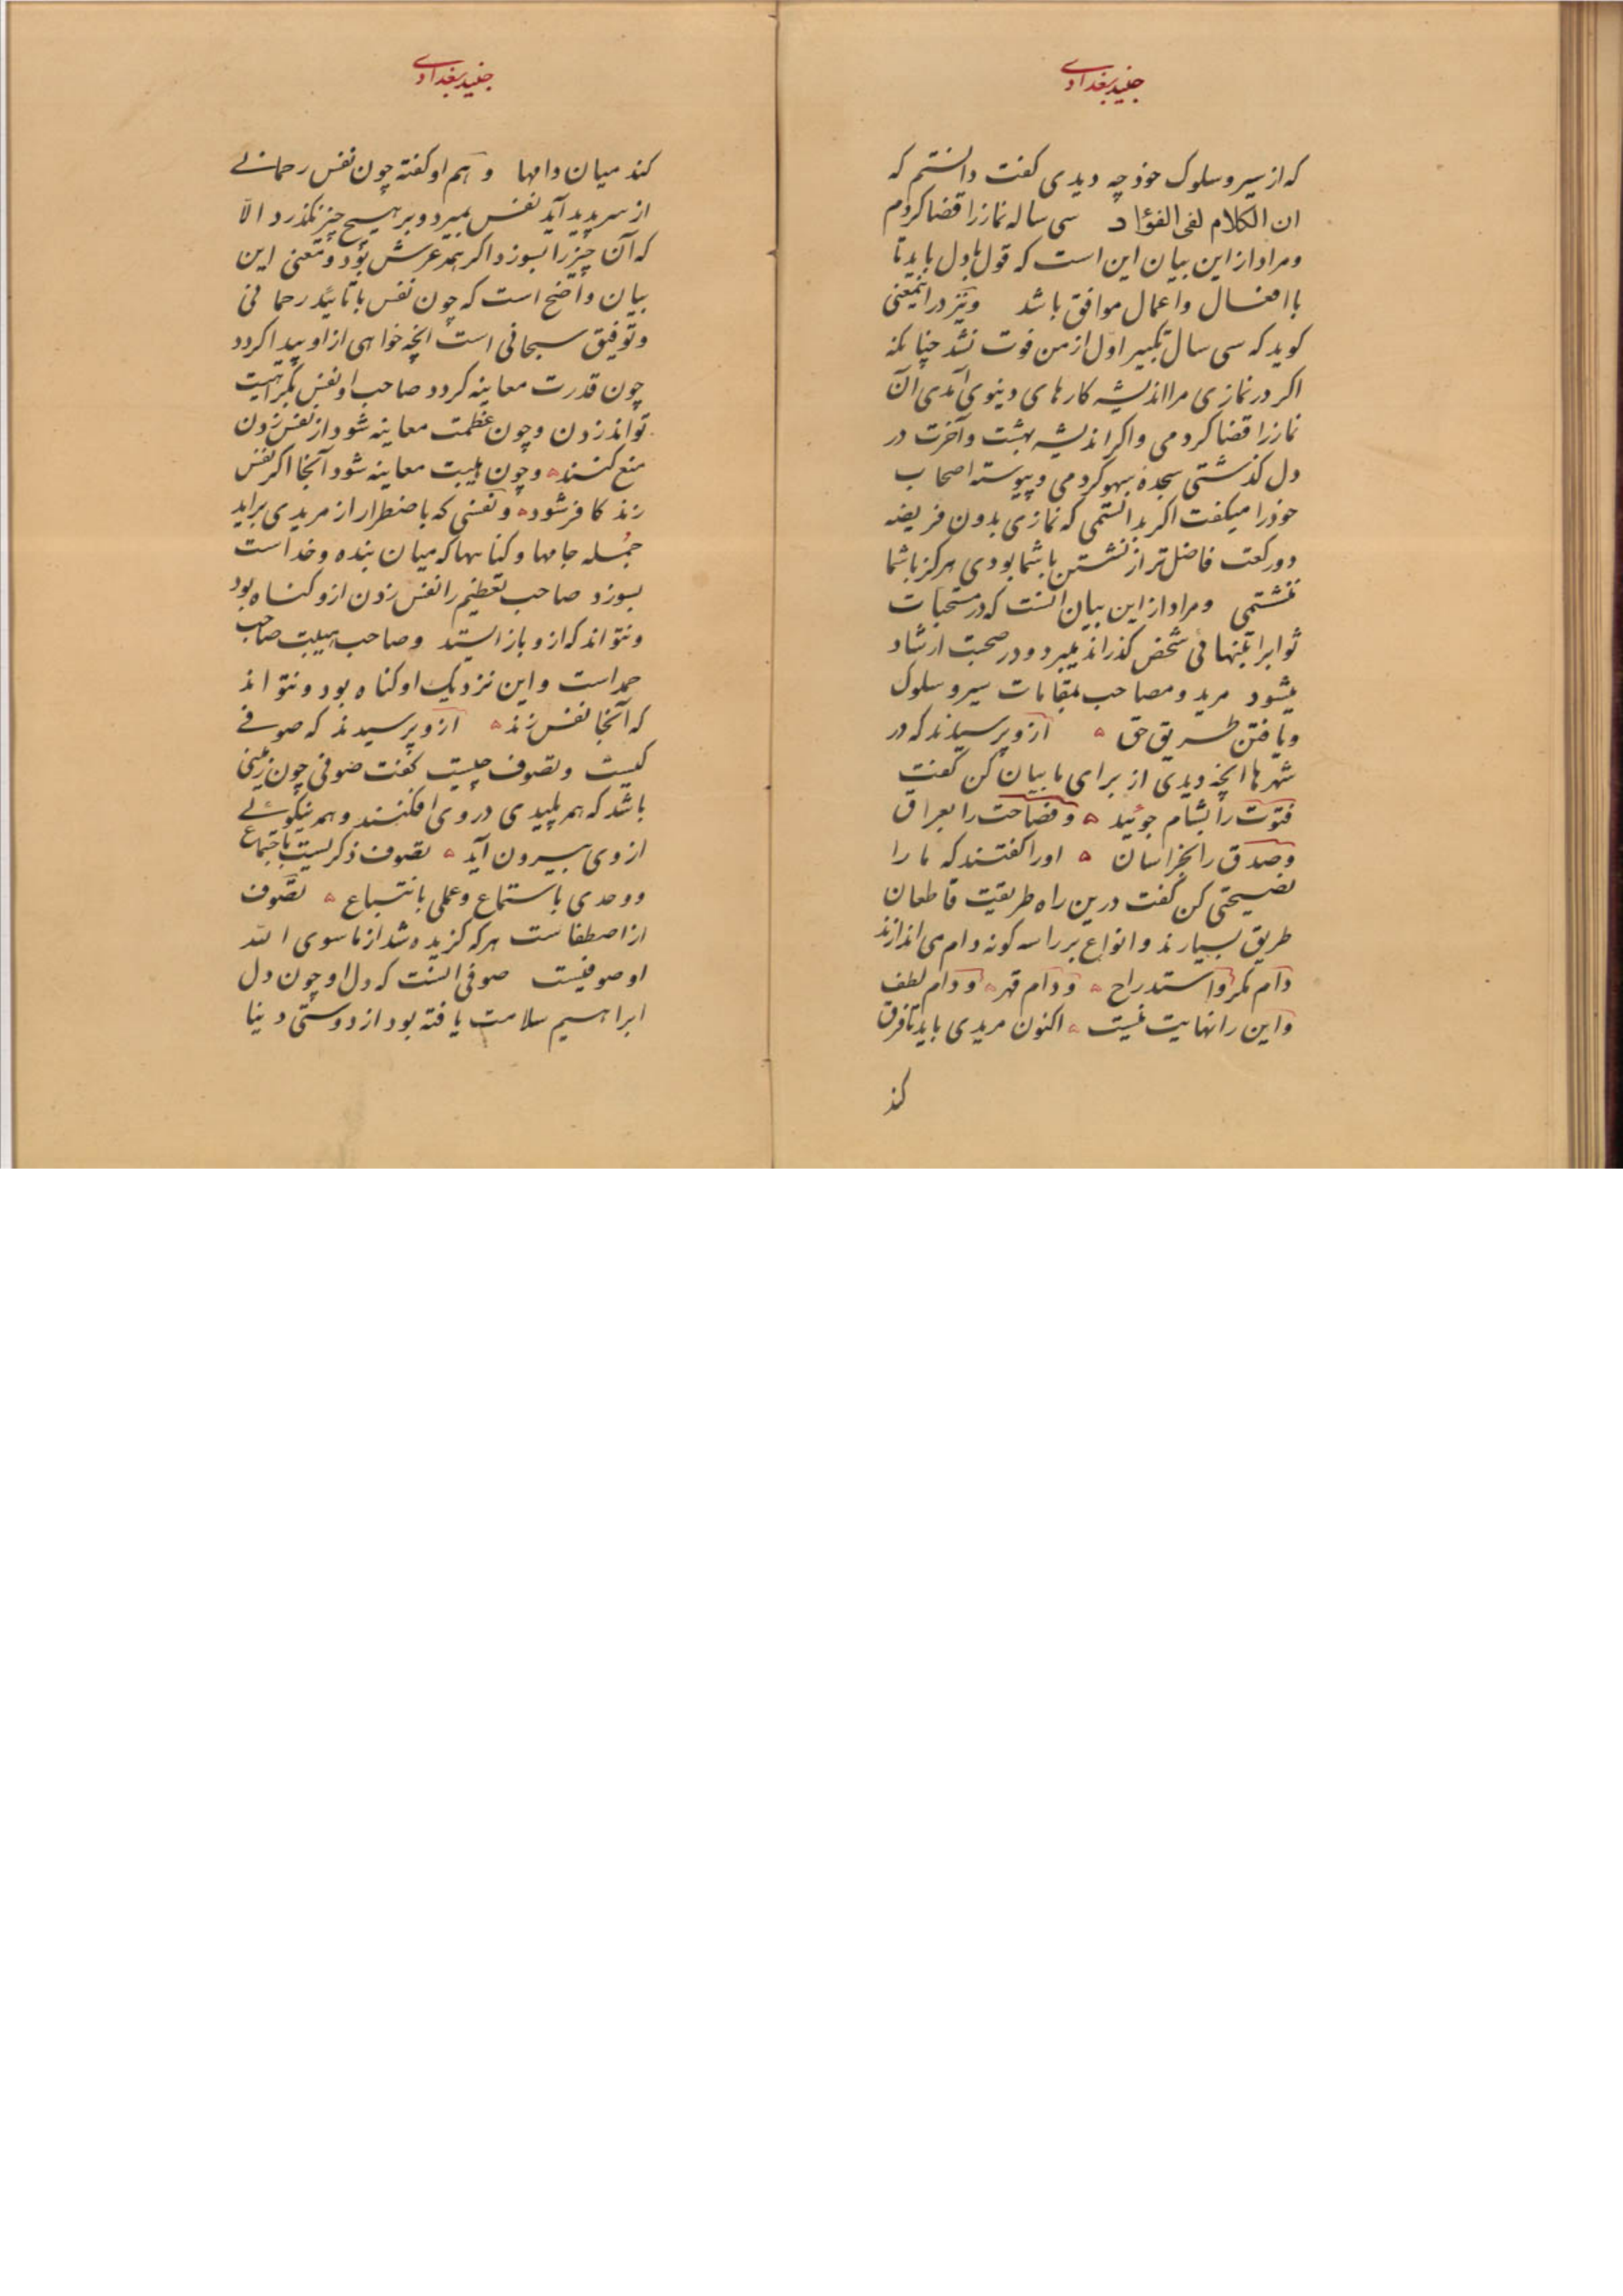 جنید بغدادی
که از سیر و سلوک خوذ چه دیدی کفت دانستم که
ان الکلام لفی الفؤاد سی ساله نماز را قضا کردم
و مراد از این بیان این است که قول با دل باید تا
با افعال و اعمال موافق باشد و نیز در اینمعنی
کوید که سی سال تکبیر اول از من فوت نشد چنانکه
اکر در نمازی مرا اندیشه کارهای دنیوی آمدی آن
نماز را قضا کردمی و اکر اندیشه بهشت و آخرت در
دل کذشتی سجده سهو کردمی و پیوسته اصحاب
خوذ را میکفت اکر بدانستمی که نمازی بدون فریضه
دو رکعت فاضل تر از نشستن با شما بودی هرکز با شما
ننشستمی و مراد از این بیان انست که در مستحبات
ثوابرا بتنهائی شخص کذراند میبرد و در صحبت ارشاد
میشود مرید و مصاحب بمقامات سیر و سلوک
و یافتن طریق حق ۵ ازو پرسیدند که در
شهرها انچه دیدی از برای ما بیان کن کفت
فتوت را بشام جوئید ۵ و فصاحت را بعراق
و صدق را بخراسان ۵ اورا کفتند که ما را
نصیحتی کن کفت درین راه طریقت قاطعان
طریق بسیارند و انواع بر راه سه کونه دام می اندازند
دام مکر و استدراج ۵ و دام قهر ۵ و دام لطف
و این را نهایت نیست ۵ اکنون مریدی باید تا فرق
کند
جنید بغدادی
کند میان دامها و هم او کفته چون نفس رحمانے
از سر پدید آید نفس بمیرد و بر هیچ چیز نکذرد الّا
که آن چیز را بسوزد اکر همه عرش بود و معنی این
بیان واضح است که چون نفس با تائید رحمانی
و توفیق سبحانی است انچه خواهی از او پیدا کردد
چون قدرت معاینه کردد صاحب او نفس بکراهیت
تواند زدن و چون عظمت معاینه شود از نفس زدن
منع کنند ۵ و چون هیبت معاینه شود آنجا اکر نفس
زند کافر شود ۵ و نفسی که باضطرار از مریدی براید
جمله جامها و کناهها که میان بنده و خداست
بسوزد صاحب تعظیم را نفس زدن ازو کناه بود
و نتواند که ازو باز ایستد و صاحب هیبت صاحب
حمد است و این نزدیک او کناه بود و نتواند
که آنجا نفس زند ۵ ازو پرسیدند که صوفے
کیست و تصوف چیست کفت صوفی چون زمینی
باشد که همه پلیدی در وی افکنند و همه نیکوئے
از وی بیرون آید ۵ تصوف ذکریست باجتماع
و وجدی باستماع و عملی باتباع ۵ تصوف
از اصطفاست هر که کزیده شد از ما سوی الله
او صوفیست صوفی انست که دل او چون دل
ابراهیم سلامت یافته بود از دوستی دنیا